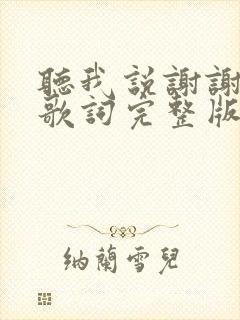 聽我説謝謝
歌詞完整版
納蘭雪兒